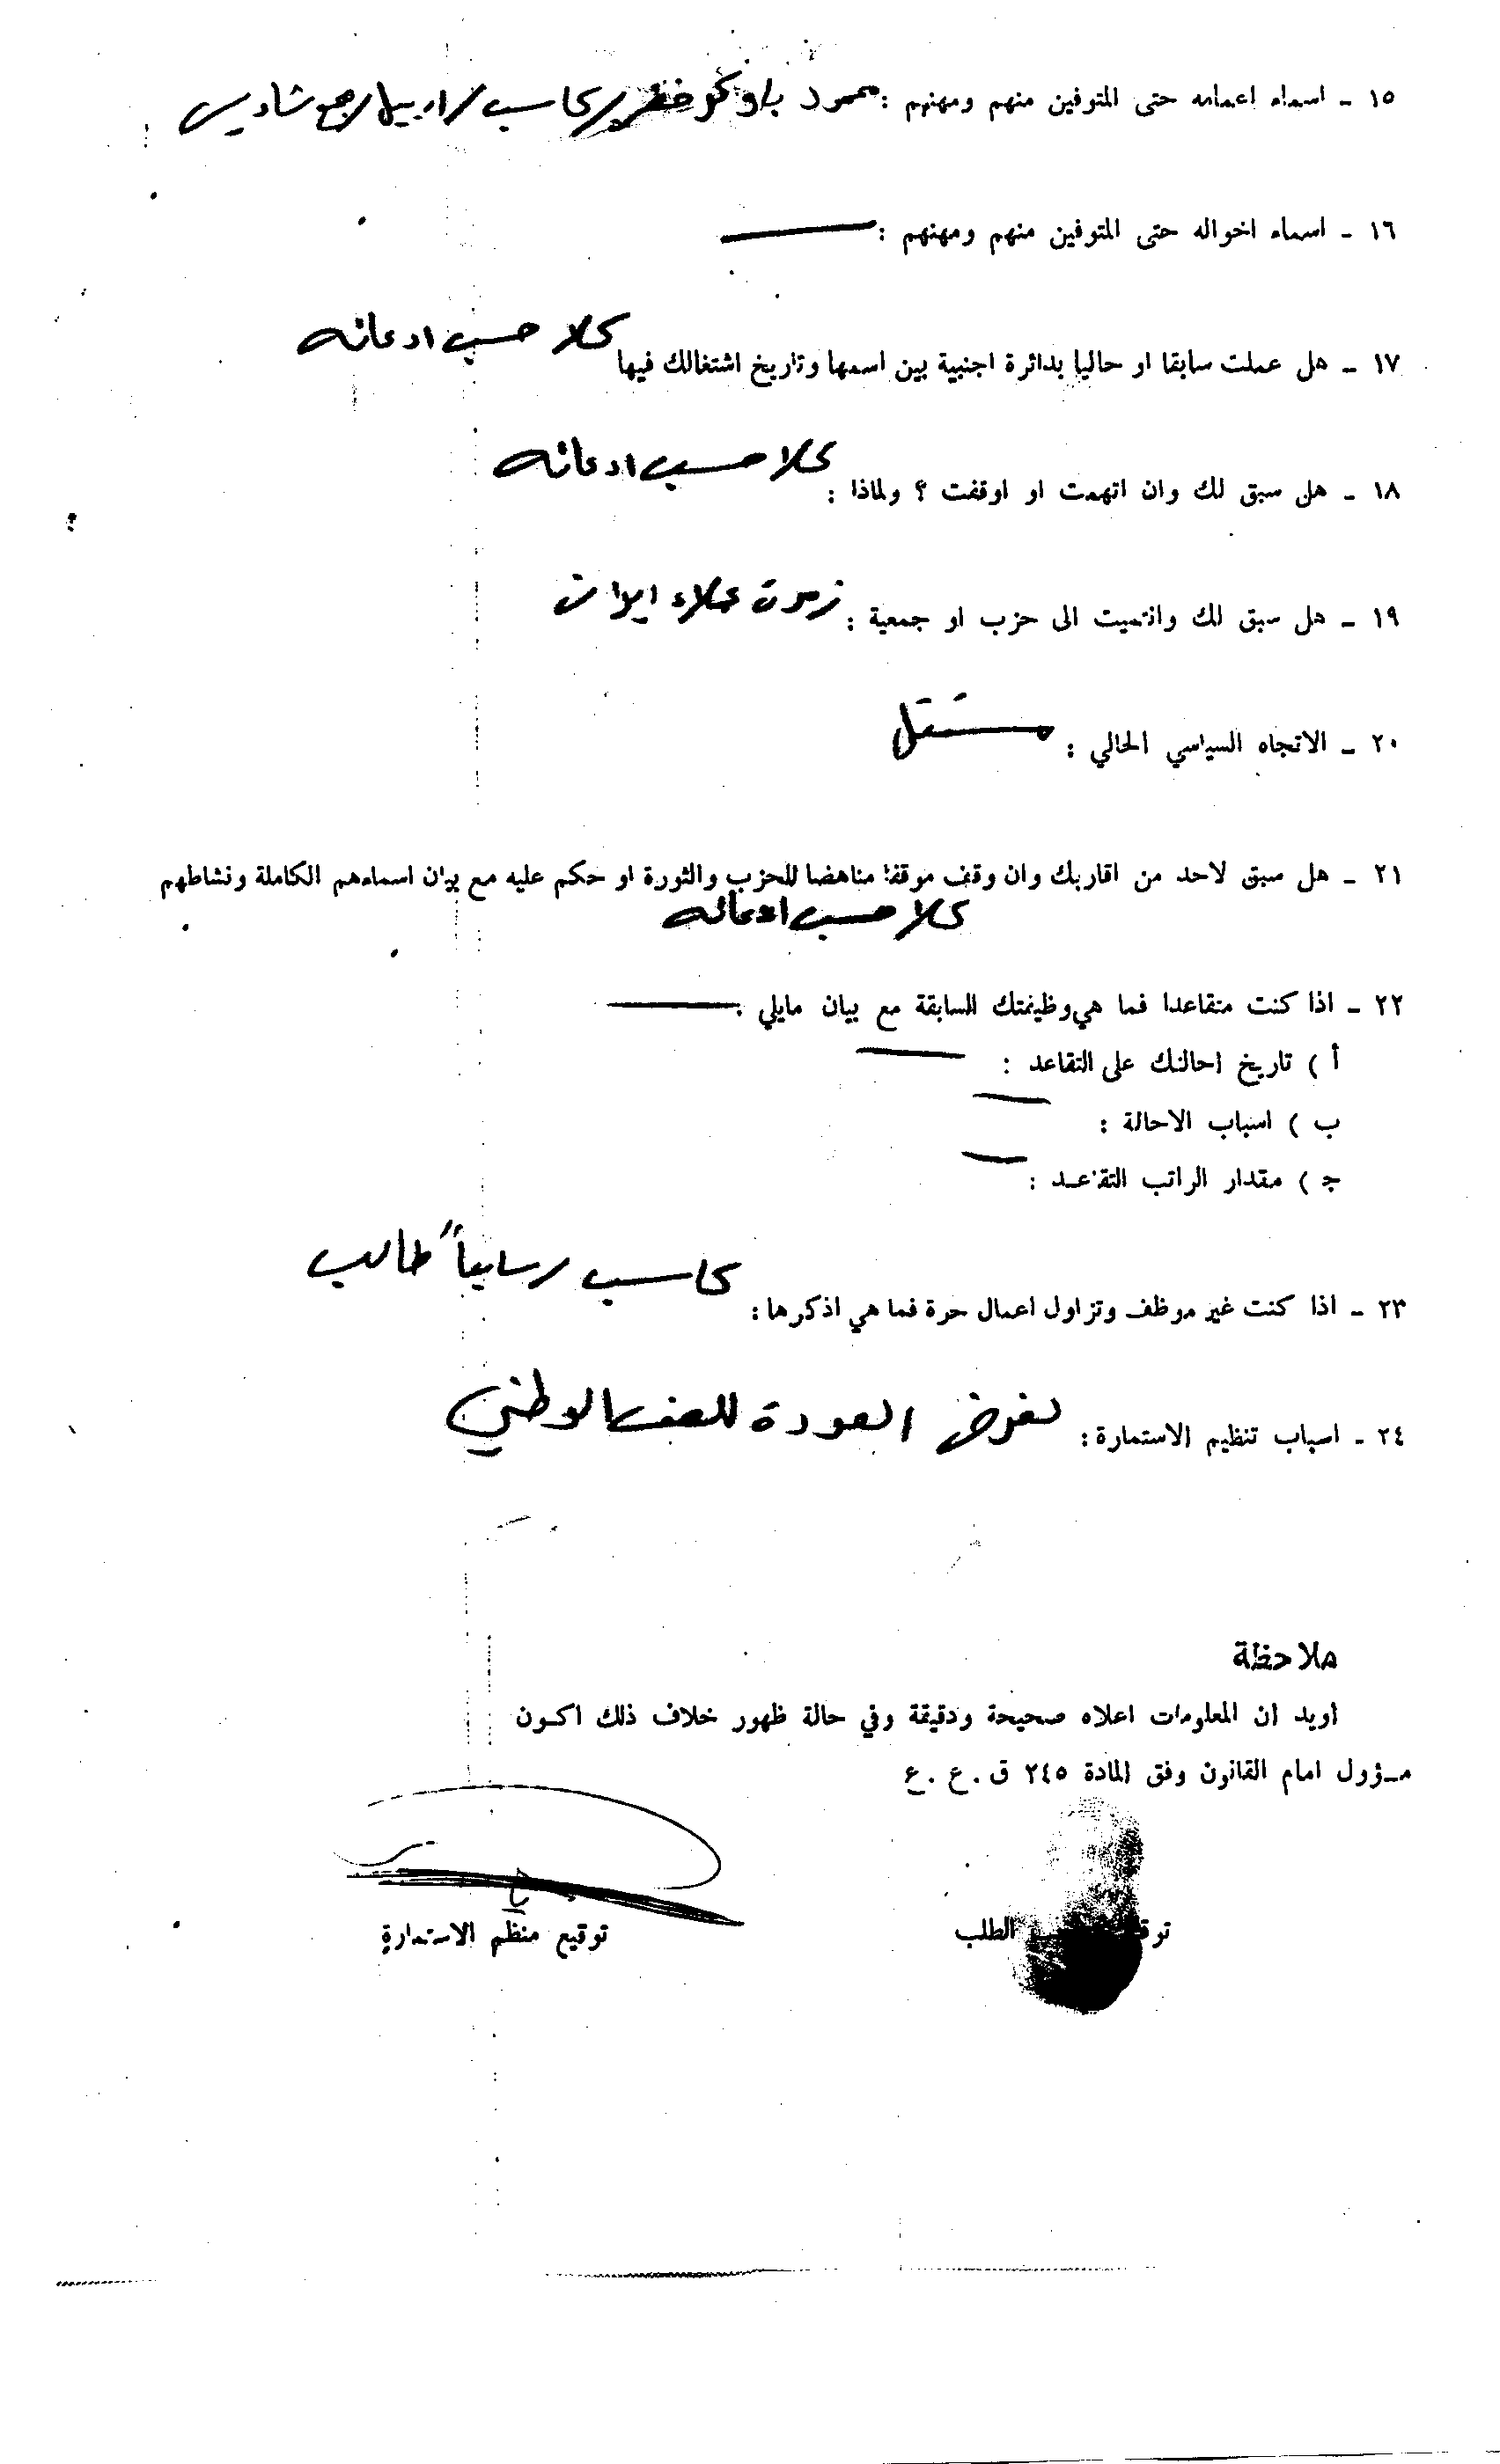 ١٥ - اسماء اعمامه حتى المتوفين منهم ومهنهم : محمود باوكو خضر / كاسب / اربيل /
١٦ - اسماء اخواله حتى المتوفين منهم ومهنهم :
كلا حسب ادعائه
١٧ - هل عملت سابقا او حاليا بدائرة اجنبية بين اسمها وتاريخ اشتغالك فيها
كلا حسب ادعائه
١٨ - هل سبق لك وان اتهمت او اوقفت ؟ ولماذا :
١٩ - هل سبق لك وانتميت الى حزب او جمعية : زمرة عملاء ايران
٢٠ - الاتجاه السياسي الحالي : مستقل
٢١ - هل سبق لاحد من اقاربك وان وقف موقفا مناهضا للحزب والثورة او حكم عليه مع بيان اسماءهم الكاملة ونشاطهم
كلا حسب ادعائه
٢٢ - اذا كنت متقاعدا فما هي وظيفتك السابقة مع بيان مايلي :
أ ) تاريخ احالتك على التقاعد :
ب ) اسباب الاحالة :
ج ) مقدار الراتب التقاعد :
كاسب / سابقاً طالب
٢٣ - اذا كنت غير موظف وتزاول اعمال حرة فما هي اذكرها :
٢٤ - اسباب تنظيم الاستمارة : لغرض العودة للصف الوطني
ملاحظة
اويد ان المعلومات اعلاه صحيحة ودقيقة وفي حالة ظهور خلاف ذلك اكـون
مـسؤول امام القانون وفق المادة ٢٤٥ ق . ع . ع
الطلب
توقيع منظم الاستمارة